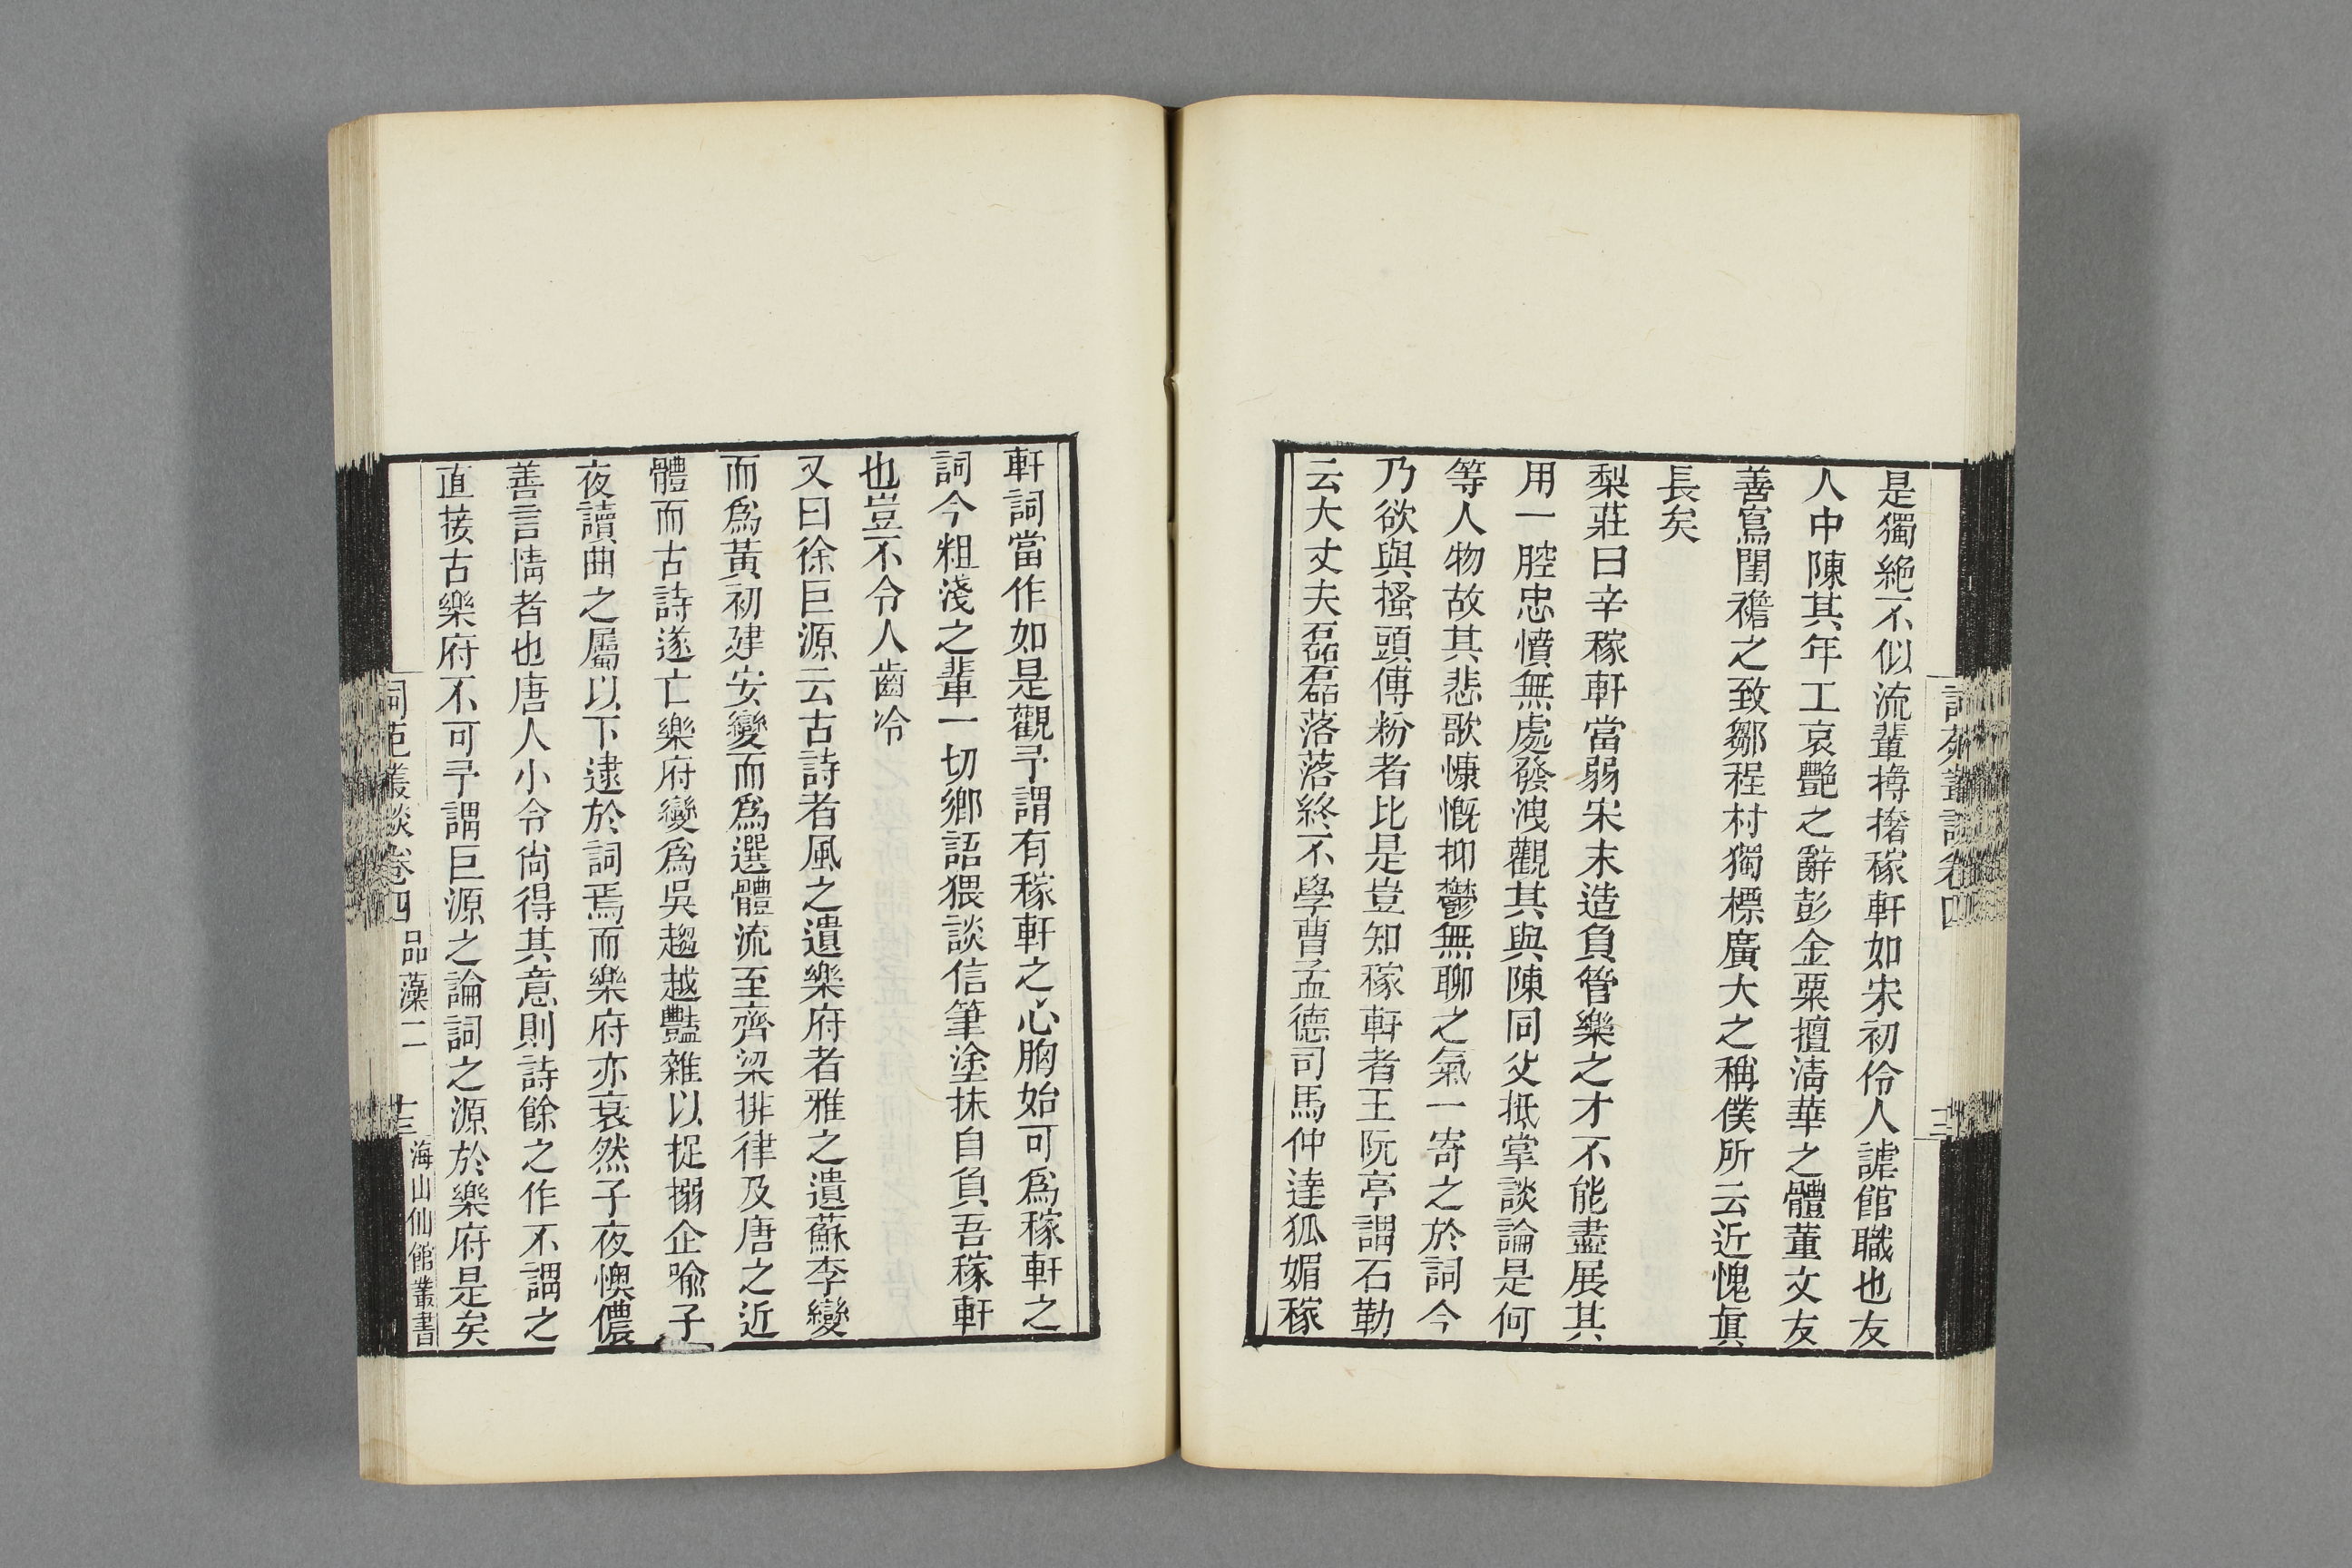 是獨絶不似流輩撏撦稼軒如宋初伶人謔館職也友
人中陳其年工哀艷之辭彭金粟擅清華之體董文友
善寫閨襜之致鄒程村獨標廣大之稱僕所云近愧眞
長矣
梨莊曰辛稼軒當弱宋末造負管樂之才不能盡展其
用一腔忠憤無處發洩觀其與陳同父抵掌談論是何
等人物故其悲歌慷慨抑鬱無聊之氣一寄之於詞今
乃欲與搔頭傅粉者比是豈知稼軒者王阮亭謂石勒
云大丈夫磊磊落落終不學曹孟德司馬仲達狐媚稼
軒詞當作如是觀予謂有稼軒之心胸始可爲稼軒之
詞今粗淺之輩一切鄉語猥談信筆塗抹自負吾稼軒
也豈不令人齒冷
又曰徐巨源云古詩者風之遺樂府者雅之遺蘇李變
而爲黃初建安變而爲選體流至齊梁排律及唐之近
體而古詩遂亡樂府變爲吳趨越豔雜以捉搦企喻子
夜讀曲之屬以下逮於詞焉而樂府亦衰然子夜懊儂
善言情者也唐人小令尙得其意則詩餘之作不謂之
直接古樂府不可予謂巨源之論詞之源於樂府是矣
詞苑叢談卷四 品藻二 十三 海山仙館叢書